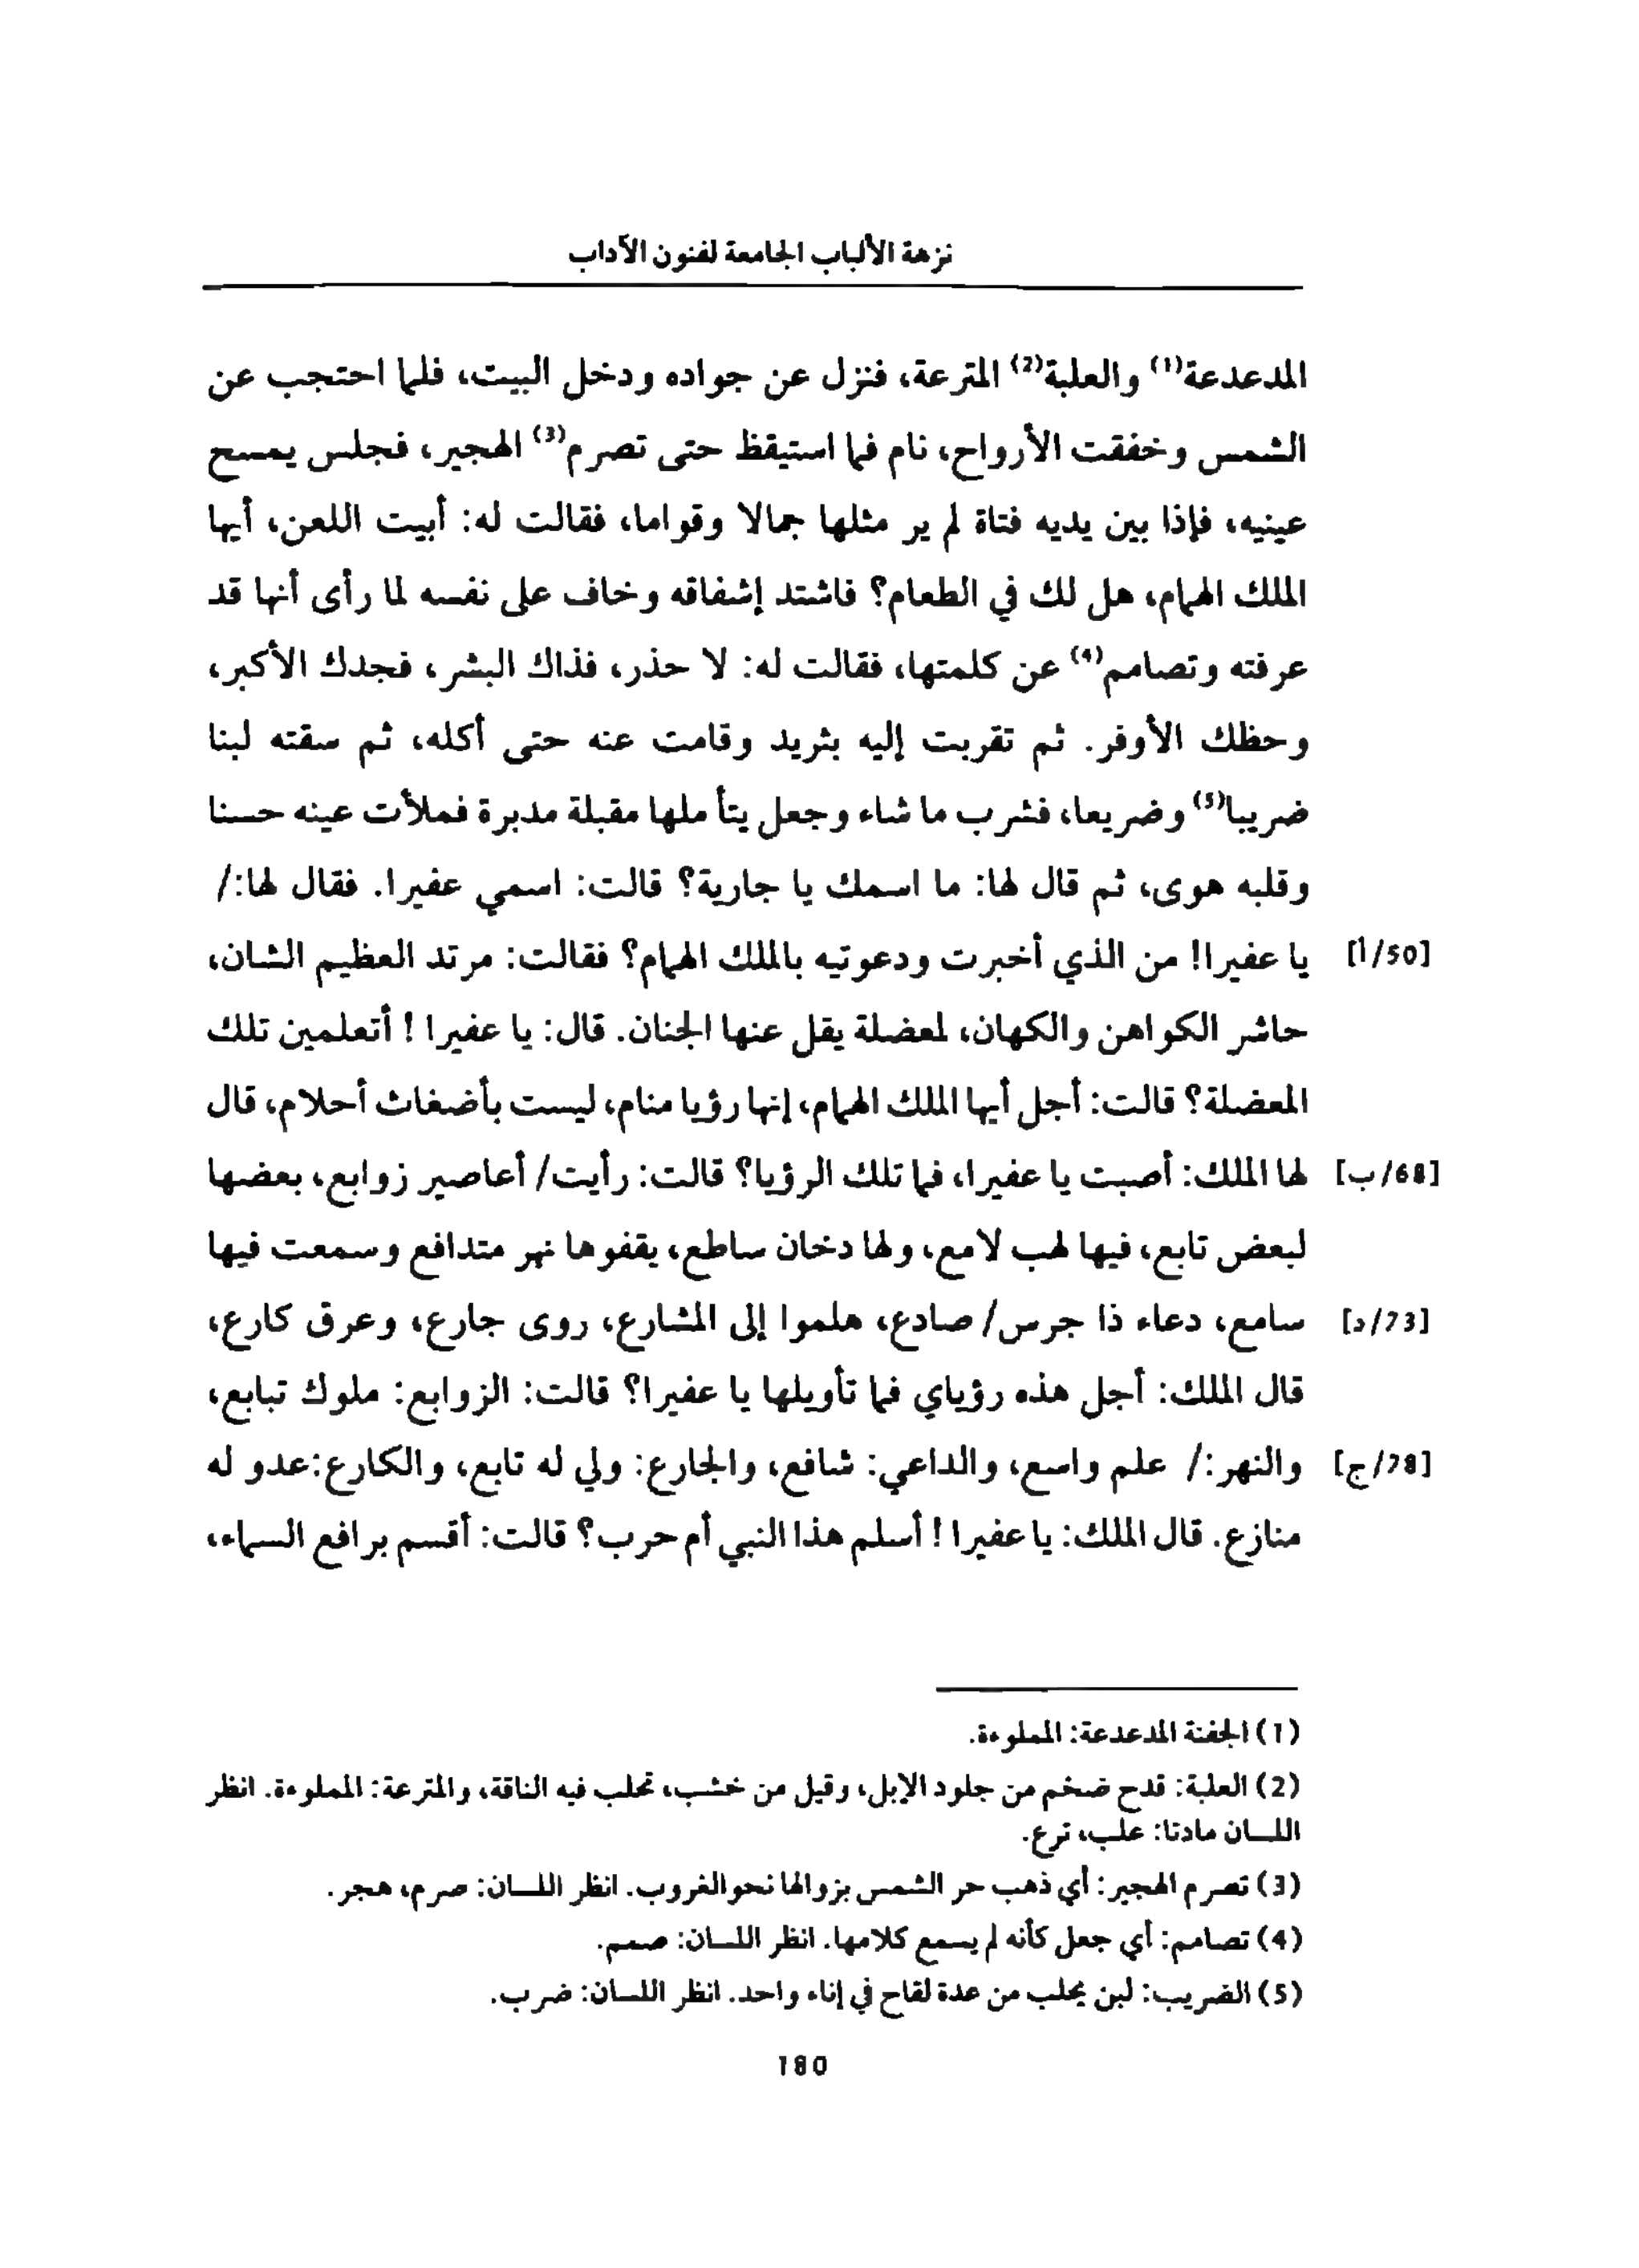 نزهة الألباب الجامعة لفنون الآداب
المدعدعة(1) والعلبة(2) المترعة، فنزل عن جواده ودخل البيت، فلما احتجب عن
الشمس وخفقت الأرواح، نام فما استيقظ حتى تصرم(3) الهجير، فجلس يمسح
عينيه، فإذا بين يديه فتاة لم ير مثلها جمالا وقواما، فقالت له: أبيت اللعن، أيها
الملك الهمام، هل لك في الطعام؟ فاشتد إشفاقه وخاف على نفسه لما رأى أنها قد
عرفته وتصامم(4) عن كلمتها، فقالت له: لا حذر، فذاك البشر، فجدك الأكبر،
وحظك الأوفر. ثم تقربت إليه بثريد وقامت عنه حتى أكله، ثم سقته لبنا
ضريبا(5) وضريعا، فشرب ما شاء وجعل يتأملها مقبلة مدبرة فملأت عينه حسنا
وقلبه هوى، ثم قال لها: ما اسمك يا جارية؟ قالت: اسمي عفيرا. فقال لها:/
[50/أ] يا عفيرا! من الذي أخبرت ودعوتيه بالملك الهمام؟ فقالت: مرتد العظيم الشان،
حاشر الكواهن والكهان، لمعضلة يقل عنها الجنان. قال: يا عفيرا ! أتعلمين تلك
المعضلة؟ قالت: أجل أيها الملك الهمام، إنها رؤيا منام، ليست بأضغاث أحلام، قال
[68/ب] لها الملك: أصبت يا عفيرا، فما تلك الرؤيا؟ قالت: رأيت/ أعاصير زوابع، بعضها
لبعض تابع، فيها لهب لامع، ولها دخان ساطع، يقفوها نهر متدافع وسمعت فيها
[73/د] سامع، دعاء ذا جرس/ صادع، هلموا إلى المشارع، روى جارع، وعرق كارع،
قال الملك: أجل هذه رؤياي فما تأويلها يا عفيرا؟ قالت: الزوابع: ملوك تبابع،
[78/ج] والنهر:/ علم واسع، والداعي: شافع، والجارع: ولي له تابع، والكارع:عدو له
منازع. قال الملك: يا عفيرا ! أسلم هذا النبي أم حرب؟ قالت: أقسم برافع السماء،
(1) الجفنة المدعدعة: المملوءة.
(2) العلبة: قدح ضخم من جلود الإبل، وقيل من خشب، تحلب فيه الناقة، والمترعة: المملوءة. انظر
اللسان مادتا: علب، ترع.
(3) تصرم الهجير: أي ذهب حر الشمس بزوالها نحو الغروب. انظر اللسان: صرم، هجر.
(4) تصامم: أي جعل كأنه لم يسمع كلامها. انظر اللسان: صمم.
(5) الضريب: لبن يحلب من عدة لقاح في إناء واحد. انظر اللسان: ضرب.
180